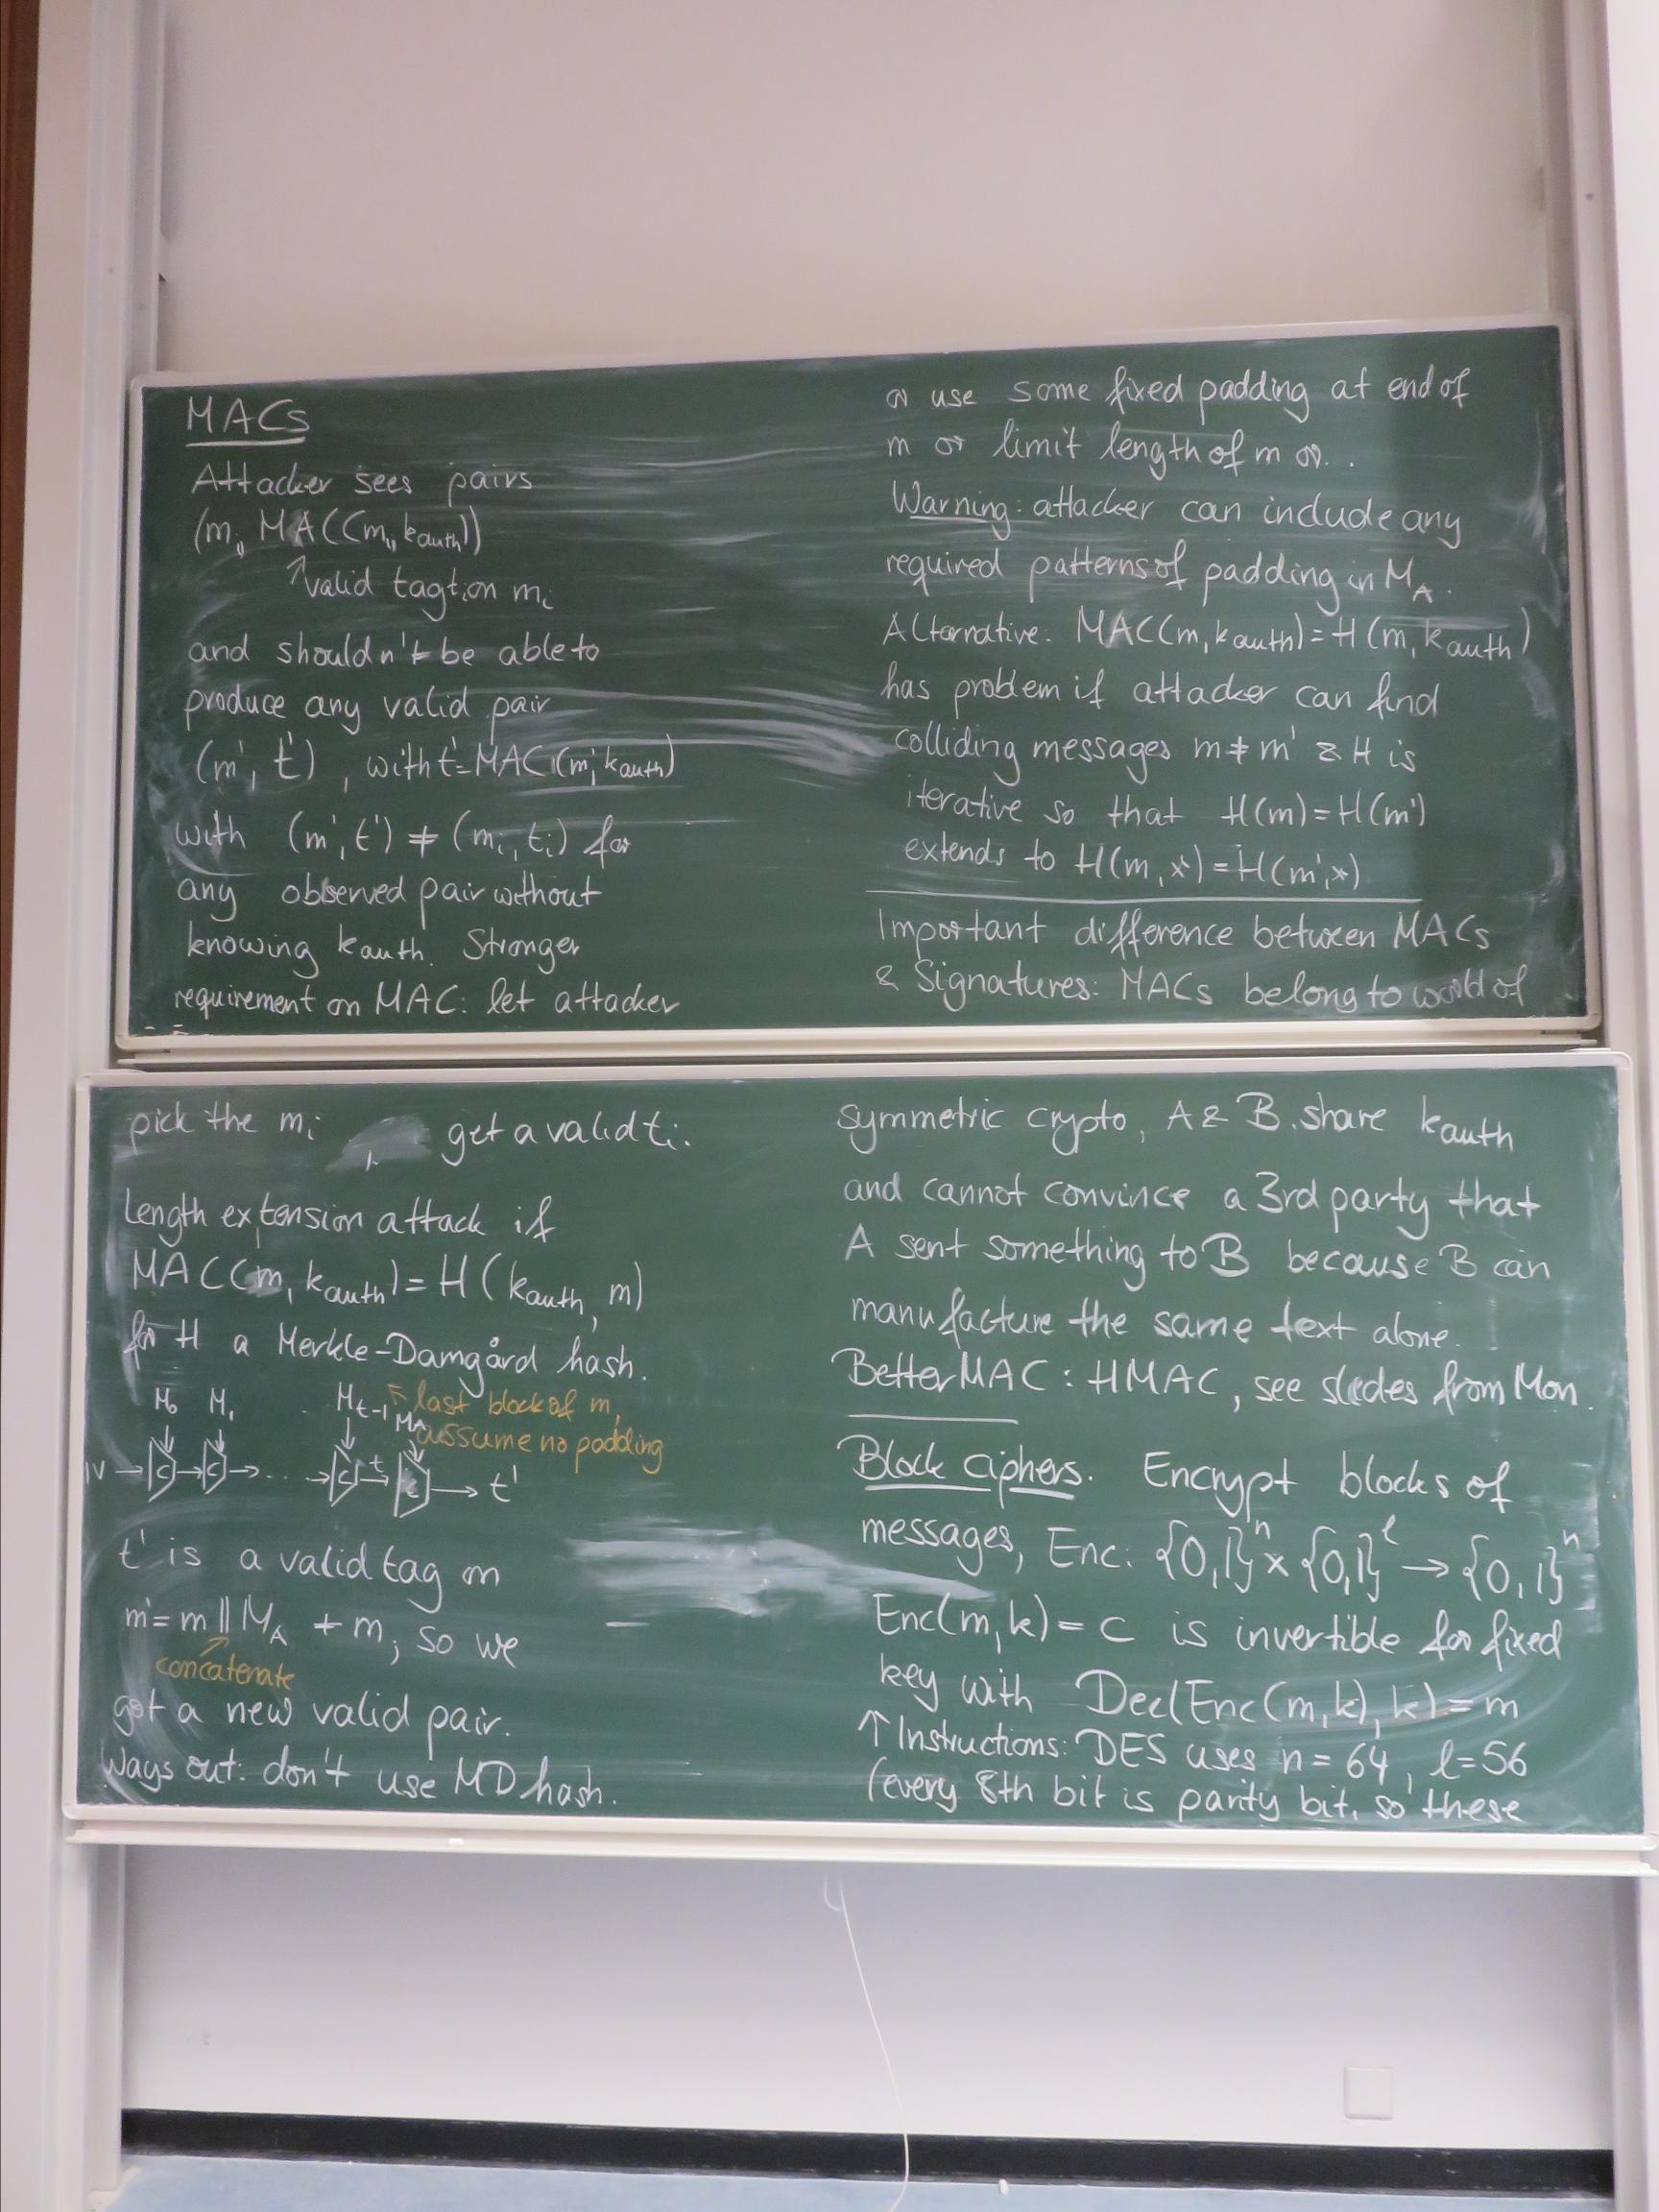 MACs
Attacker sees pairs
(mᵢ, MAC(mᵢ, k_auth))
↑ valid tag t on mᵢ
and shouldn't be able to
produce any valid pair
(m', t'), with t'=MAC(m', k_auth)
with (m', t') ≠ (mᵢ, tᵢ) for
any observed pair without
knowing k_auth. Stronger
requirement on MAC: let attacker
pick the mᵢ, get a valid tᵢ.
Length extension attack if
MAC(m, k_auth) = H(k_auth, m)
for H a Merkle-Damgård hash.
M₀ M₁ M_t-1 ↖ last block of m,
M_A assume no padding
IV → C → C → ... → C t → C → t'
t' is a valid tag on
m' = m || M_A ≠ m, so we
concatenate
got a new valid pair.
Ways out: don't use MD hash.
or use some fixed padding at end of
m or limit length of m or..
Warning: attacker can include any
required patterns of padding in M_A.
Alternative: MAC(m, k_auth) = H(m, k_auth)
has problem if attacker can find
colliding messages m ≠ m' & H is
iterative so that H(m) = H(m')
extends to H(m, x) = H(m', x)
Important difference between MACs
& Signatures: MACs belong to world of
symmetric crypto, A & B share k_auth
and cannot convince a 3rd party that
A sent something to B because B can
manufacture the same text alone.
Better MAC: HMAC, see slides from Mon.
Block ciphers. Encrypt blocks of
messages, Enc: {0,1}ⁿ × {0,1}ˡ → {0,1}ⁿ
Enc(m, k) = c is invertible for fixed
key with Dec(Enc(m, k), k) = m
↑ Instructions: DES uses n = 64, l = 56
(every 8th bit is parity bit, so these